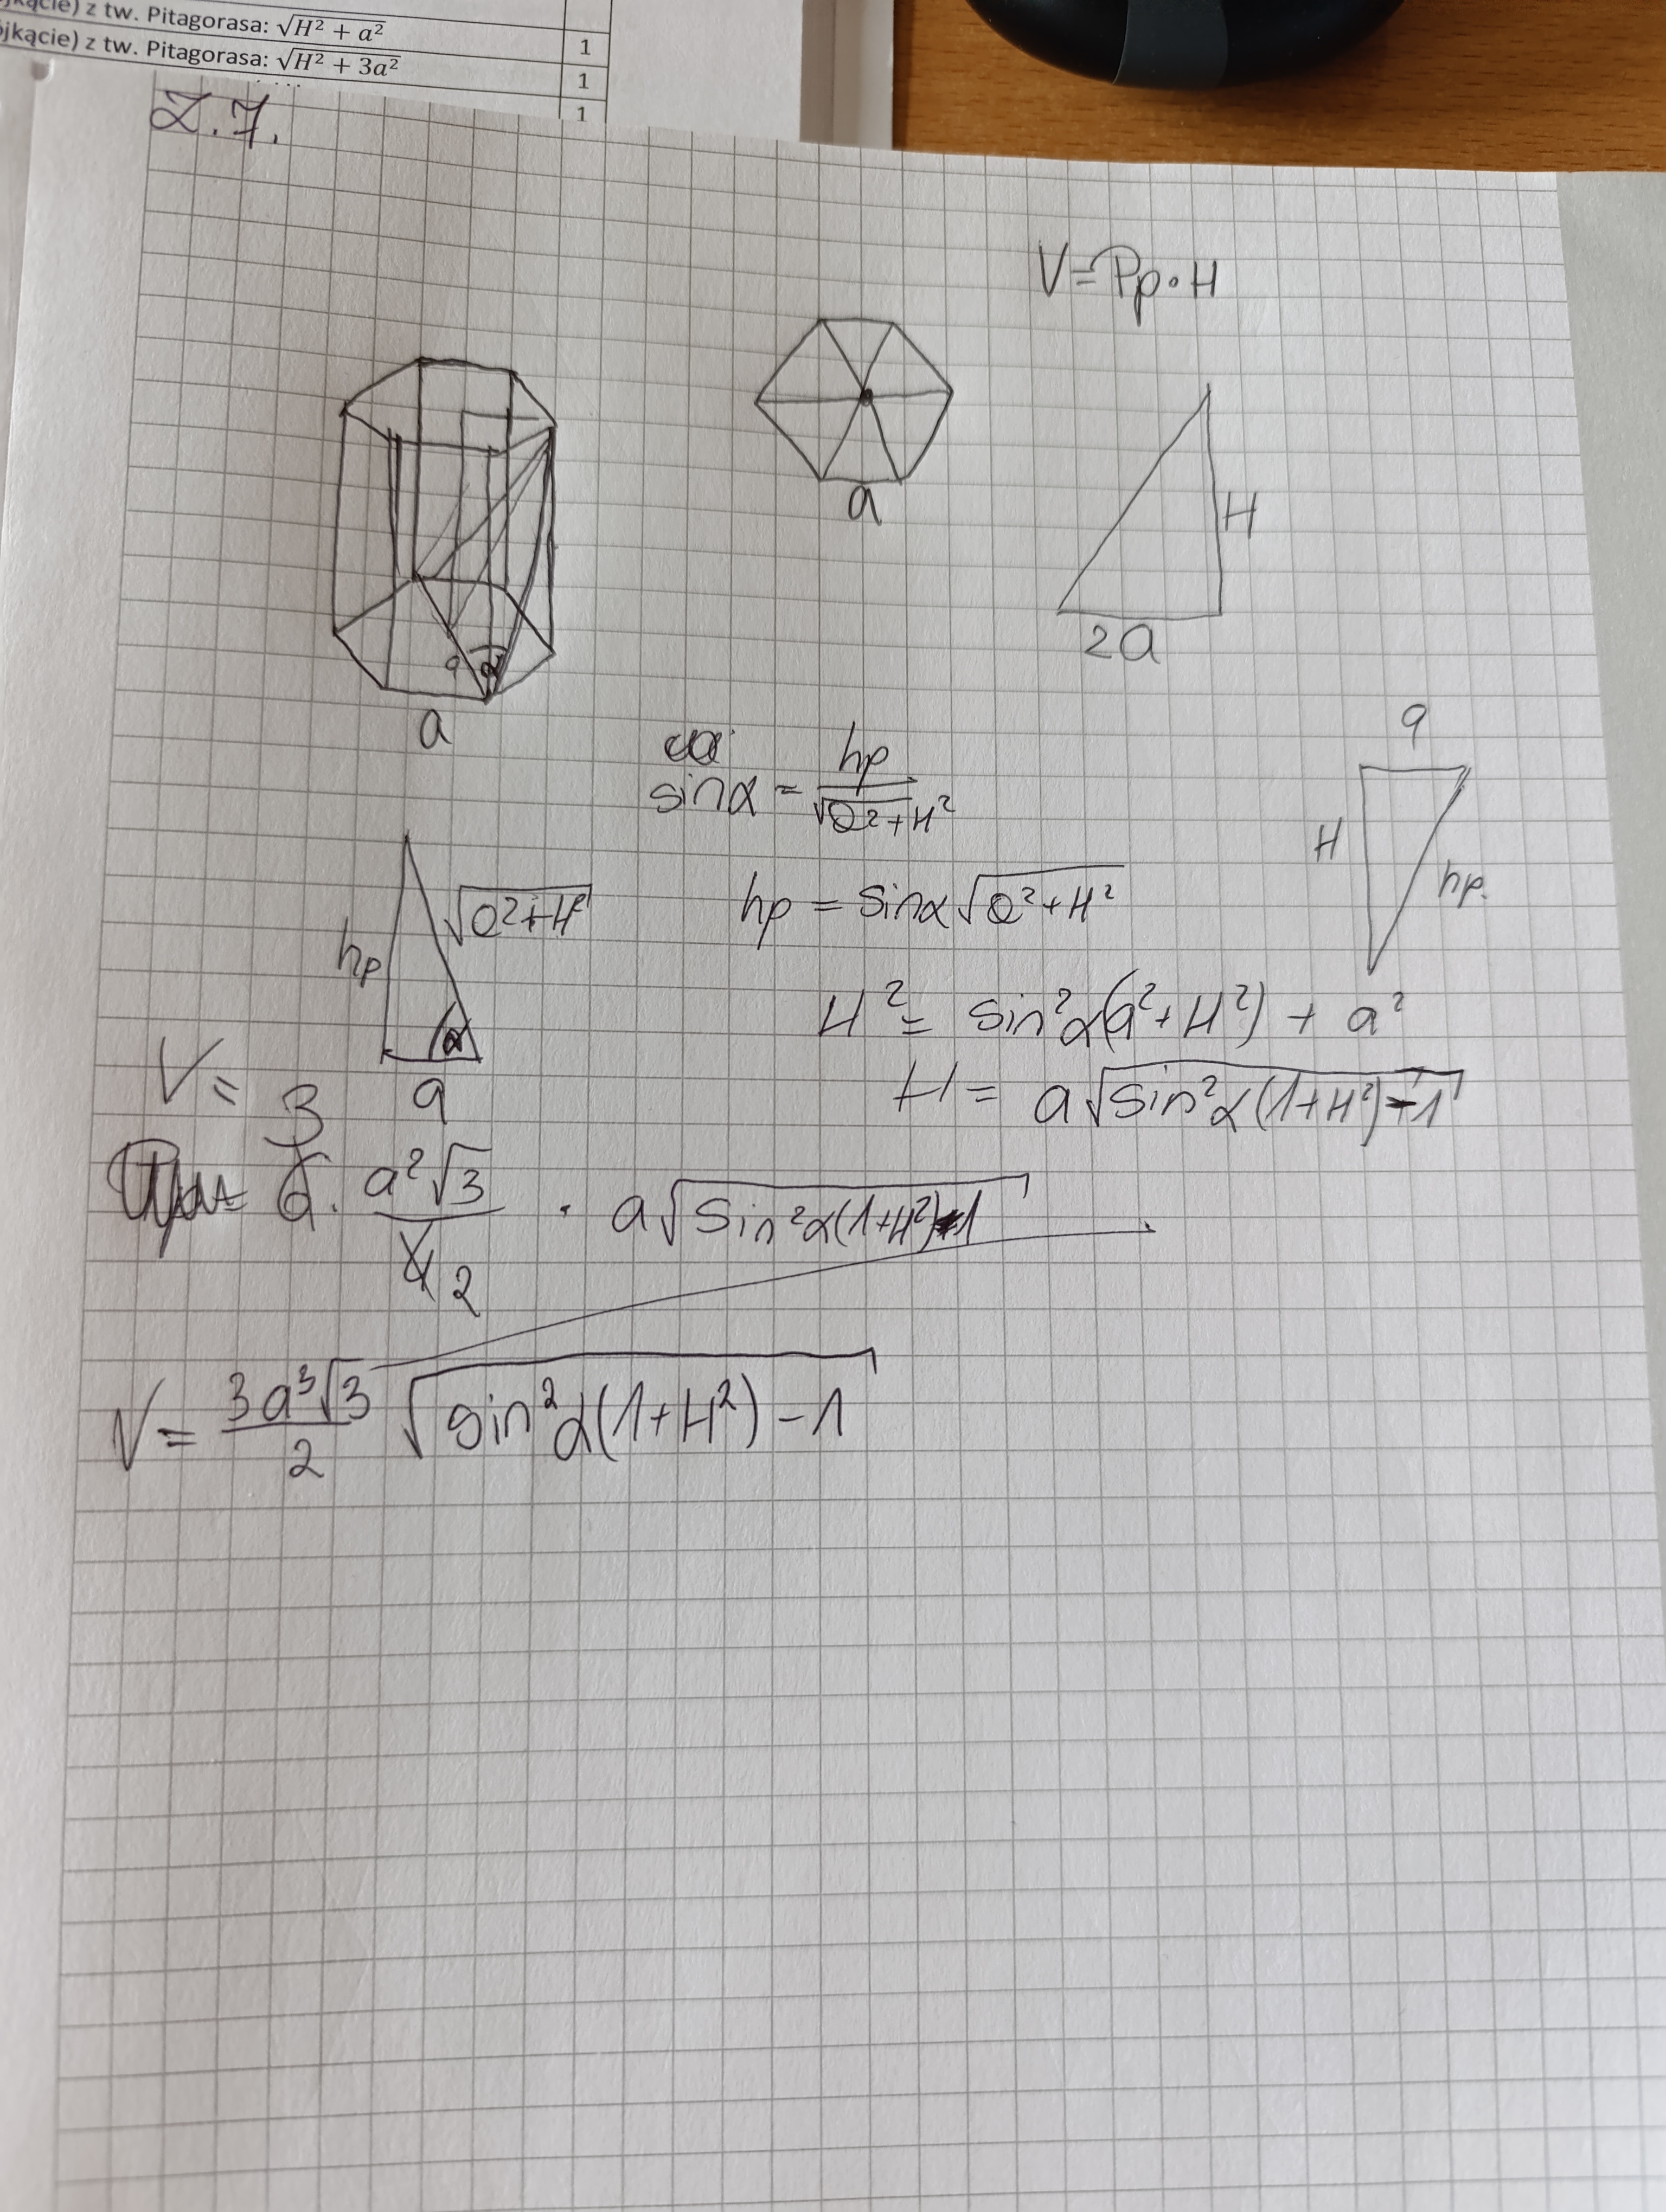 z tw. Pitagorasa: √H² + a²
1
z tw. Pitagorasa: √H² + 3a²
1
1
Z.7.
V = Pp · H
a
H
2a
a
α
a
sinα = hp / √a²+H²
a
H
hp.
hp
√a²+H²
α
a
hp = sinα √a²+H²
H² = sin²α(a²+H²) + a²
V =
H = a√sin²α(1+H²)-1
3
6 · a²√3 / 4 2 · a√sin²α(1+H²)-1
V = 3a³√3 / 2 √sin²α(1+H²) - 1